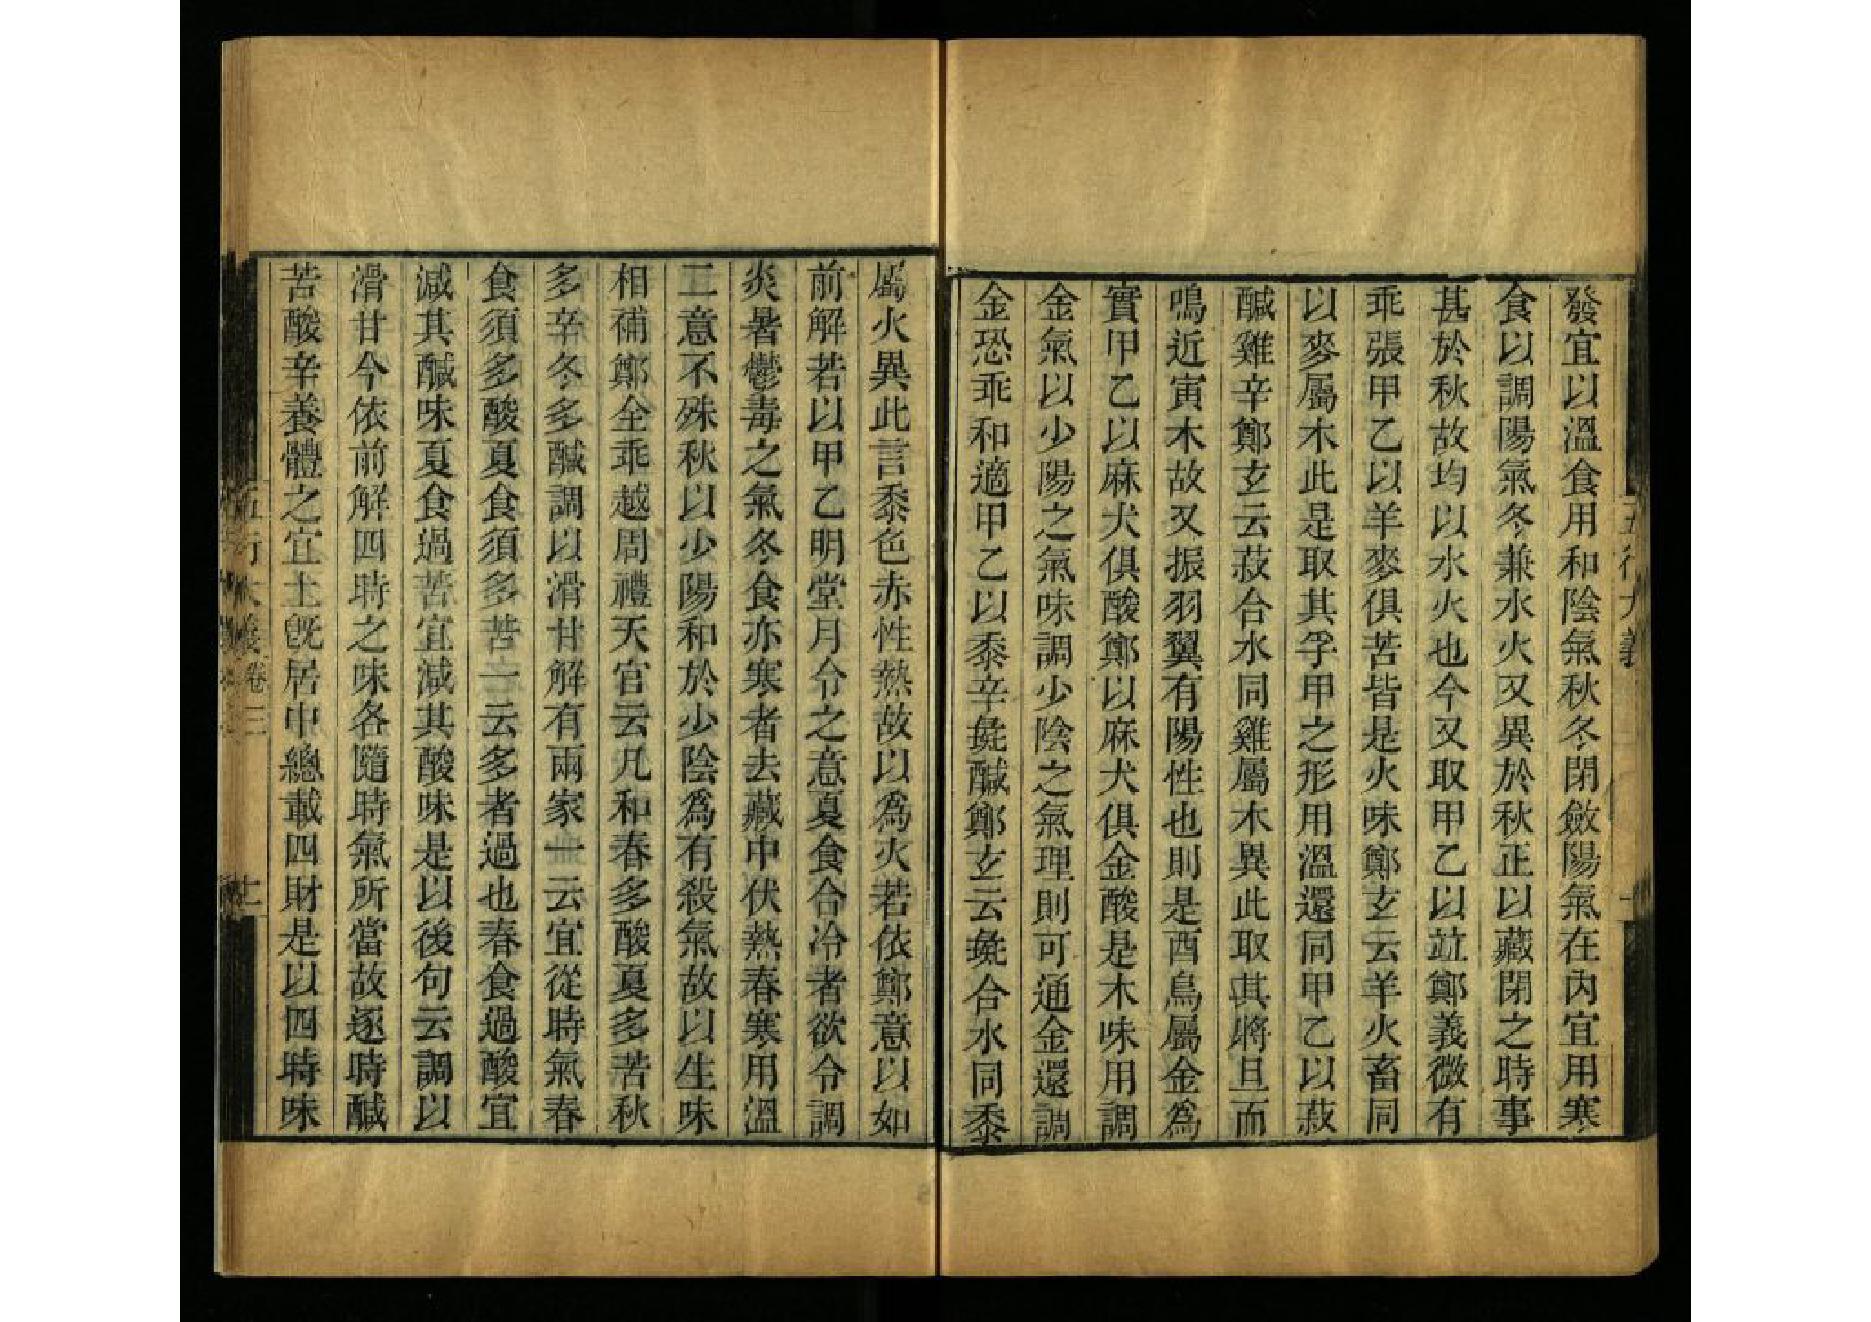 發宜以溫食用和陰氣秋冬閉斂陽氣在內宜用寒
食以調陽氣冬兼水火又異於秋正以藏閉之時事
甚於秋故均以水火也今又取甲乙以竝鄭義微有
乖張甲乙以羊麥俱苦皆是火味鄭玄云羊火畜同
以麥屬木此是取其孚甲之形用溫還同甲乙以菽
醎雞辛鄭玄云菽合水同雞屬木異此取其將旦而
鳴近寅木故又振羽翼有陽性也則是酉鳥屬金為
實甲乙以麻犬俱酸鄭以麻犬俱金酸是木味用調
金氣以少陽之氣味調少陰之氣理則可通金還調
金恐乖和適甲乙以黍辛彘醎鄭玄云彘合水同黍
屬火異此言黍色赤性熱故以為火若依鄭意以如
前解若以甲乙明堂月令之意夏食合冷者欲令調
炎暑鬱毒之氣冬食亦寒者去藏中伏熱春寒用溫
二意不殊秋以少陽和於少陰為有殺氣故以生味
相補鄭全乖越周禮天官云凡和春多酸夏多苦秋
多辛冬多醎調以滑甘解有兩家一云宜從時氣春
食須多酸夏食須多苦一云多者過也春食過酸宜
減其醎味夏食過苦宜減其酸味是以後句云調以
滑甘今依前解四時之味各隨時氣所當故逐時醎
苦酸辛養體之宜土旣居中總載四財是以四時味
五行大義卷三